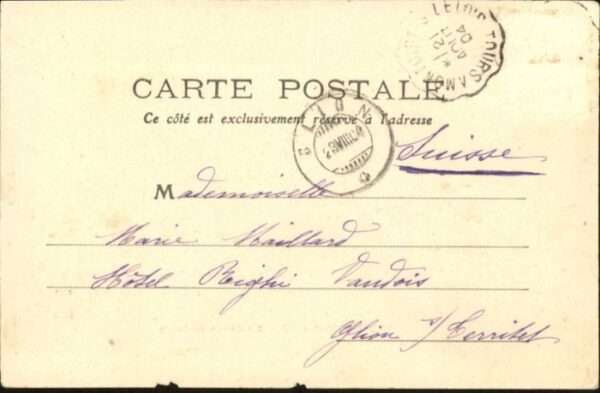 CARTE POSTALE
Ce côté est exclusivement réservé à l'adresse
Suisse
Mademoiselle
Marie Maillard
Hôtel Righi Vaudois
Glion s/ Territet
TOURS A MON
21
AOUT
04
GLION
VIII 04